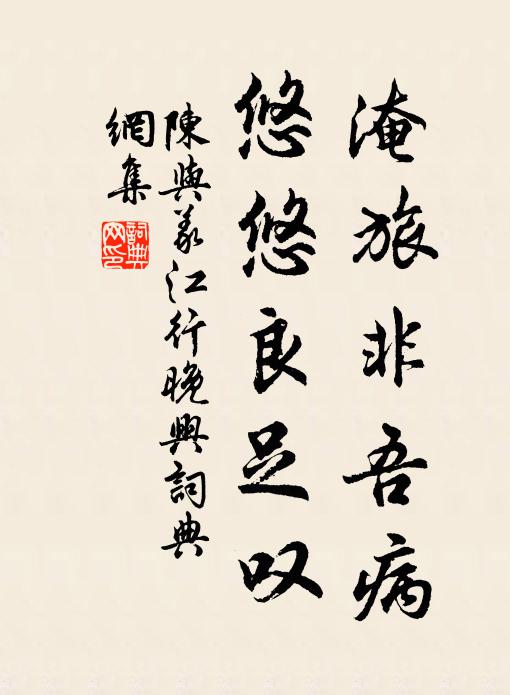 淹旅非吾病
悠悠良足叹
陳與義江行晚興詞典
網集
詞典网印